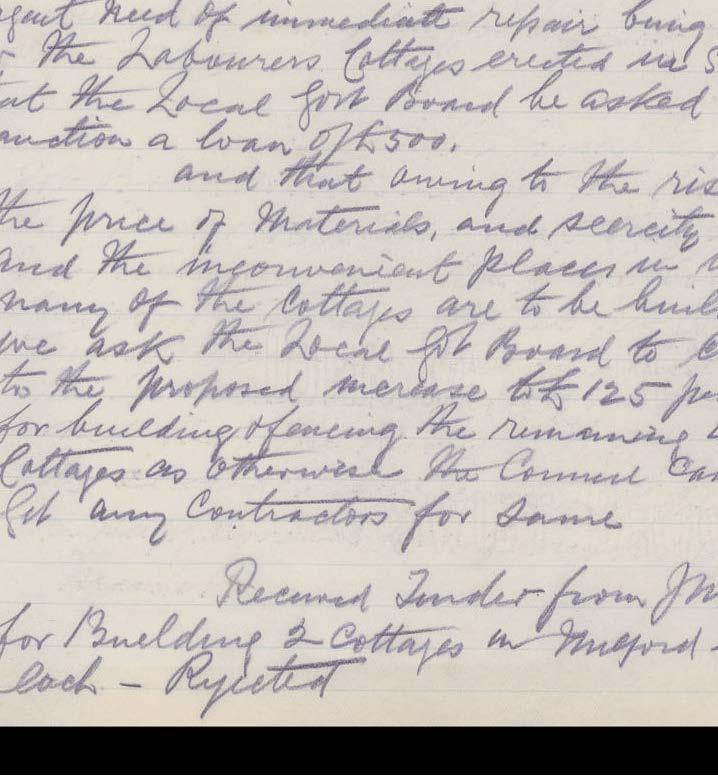 need of immediate repair being
the Labourers Cottages erected in S
at the Local Govt Board be asked
sanction a loan of £500.
and that owing to the ris
the price of Materials, and scercity
and the inconvenient places in w
many of the Cottages are to be buil
we ask the Local Govt Board to C
to the proposed increase to £125 pe
for building & fencing the remaining
Cottages as otherwise the Council Can
Get any Contractors for same
Received Tender from JM
for Building 2 Cottages in Milford -
each - Rejected